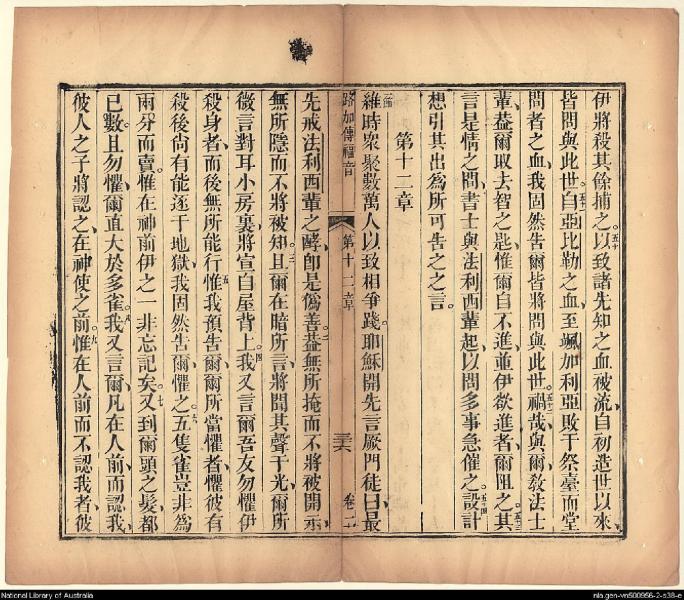 伊將殺其餘捕之五十以致諸先知之血被流自初造世以來
皆問與此世五一自亞比勒之血至颯加利亞敗于祭臺而堂
問者之血我固然告爾皆將問與此世五二禍哉與爾教法士
輩葢爾取去智之匙惟爾自不進並伊欲進者爾阻之五三其
言是情之間書士與法利西輩起以問多事急催之五四設計
想引其出爲所可告之之言
第十二章
一節維時衆聚數萬人以致相爭踐耶穌開先言厥門徒曰最
路加傳福音 第十二章 三六 卷二
先戒法利西輩之酵卽是僞善二葢無所掩而不將被開示
無所隱而不將被知三且爾在暗所言將聞其聲于光爾所
微言對耳小房裏將宣白屋背上四我又言爾吾友勿懼伊
殺身者而後無所能行五惟我預告爾爾所當懼者懼彼有
殺後尚有能逐于地獄我固然告爾懼之六五隻雀豈非爲
兩分而賣惟在神前伊之一非忘記矣七又到爾頭之髮都
已數且勿懼爾直大於多雀八我又言爾凡在人前而認我
彼人之子將認之在神使之前九惟在人前而不認我者彼
National Library of Australia
nla.gen-vn500956-2-s38-e